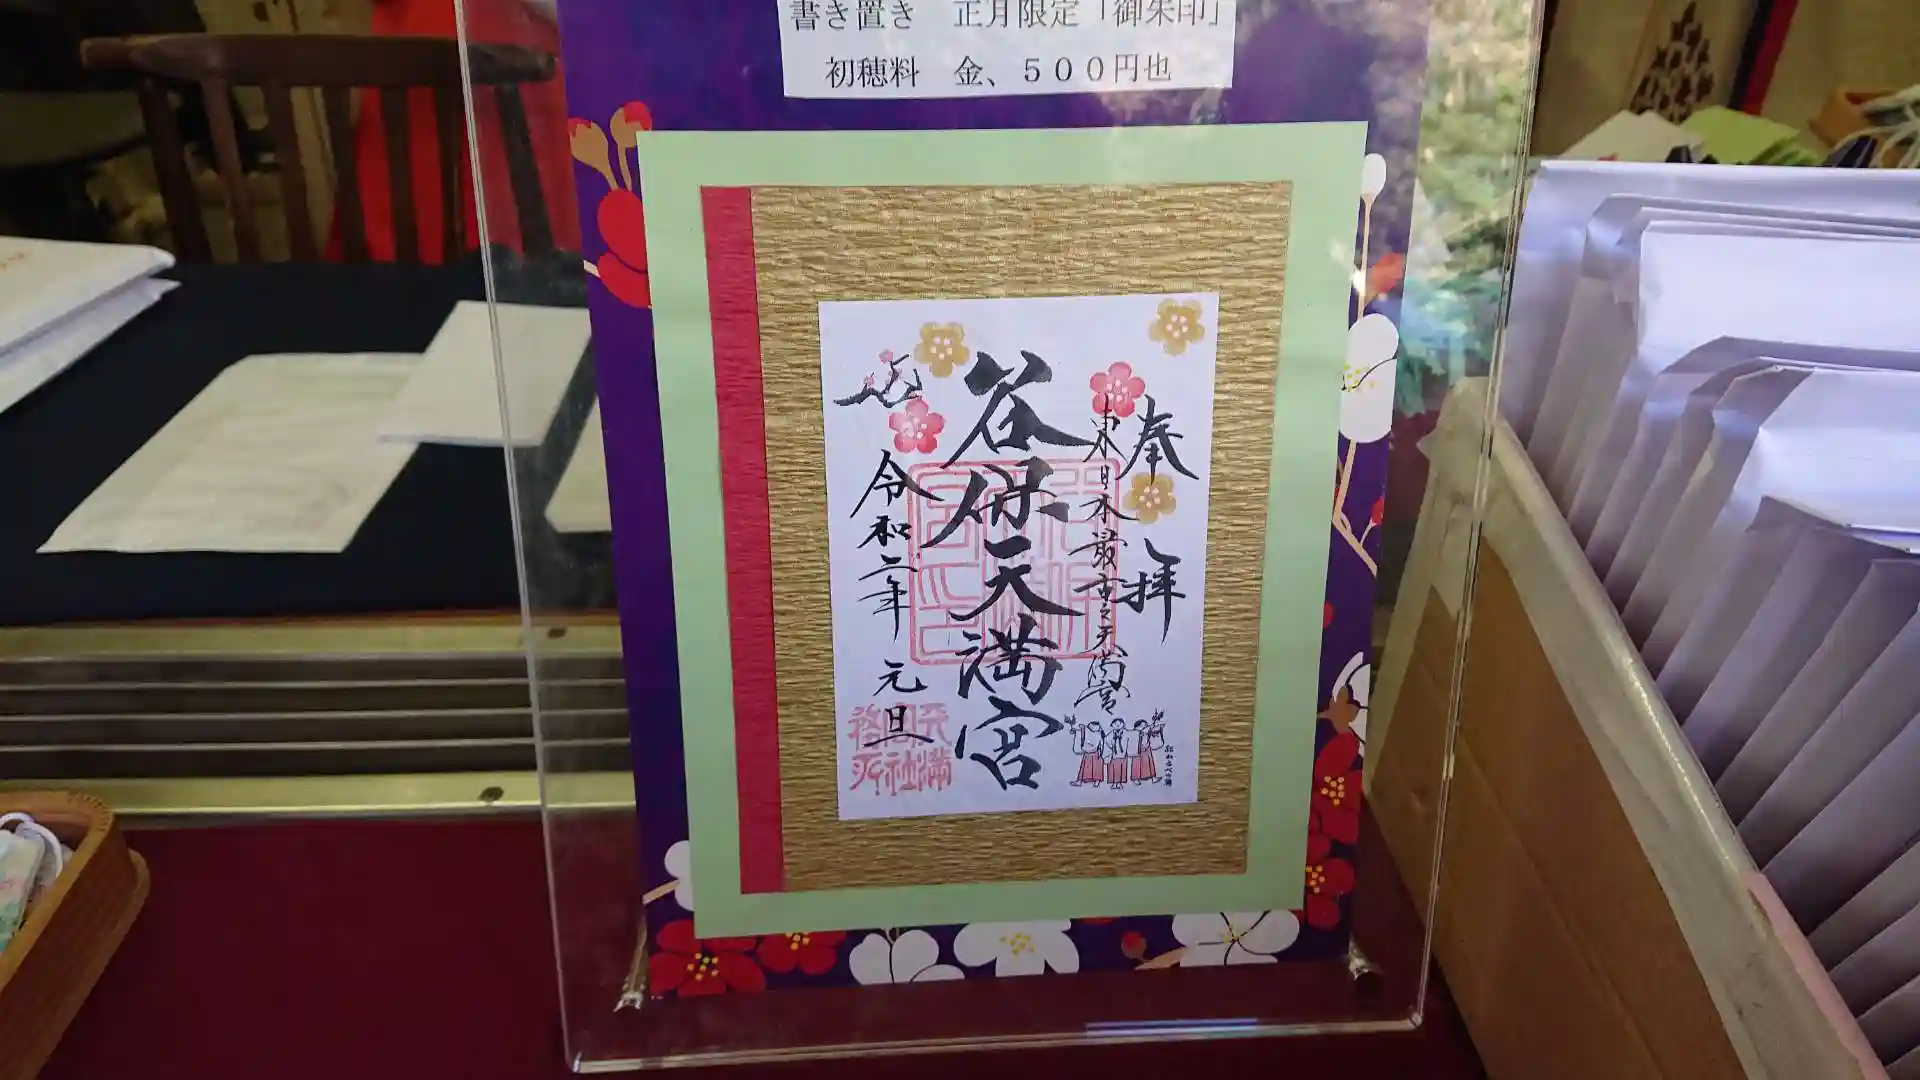 書き置き　正月限定「御朱印」
初穂料　金、５００円也
奉拝
東日本最古之天満宮
谷保天満宮
令和二年　元旦
天満
宮社
務所